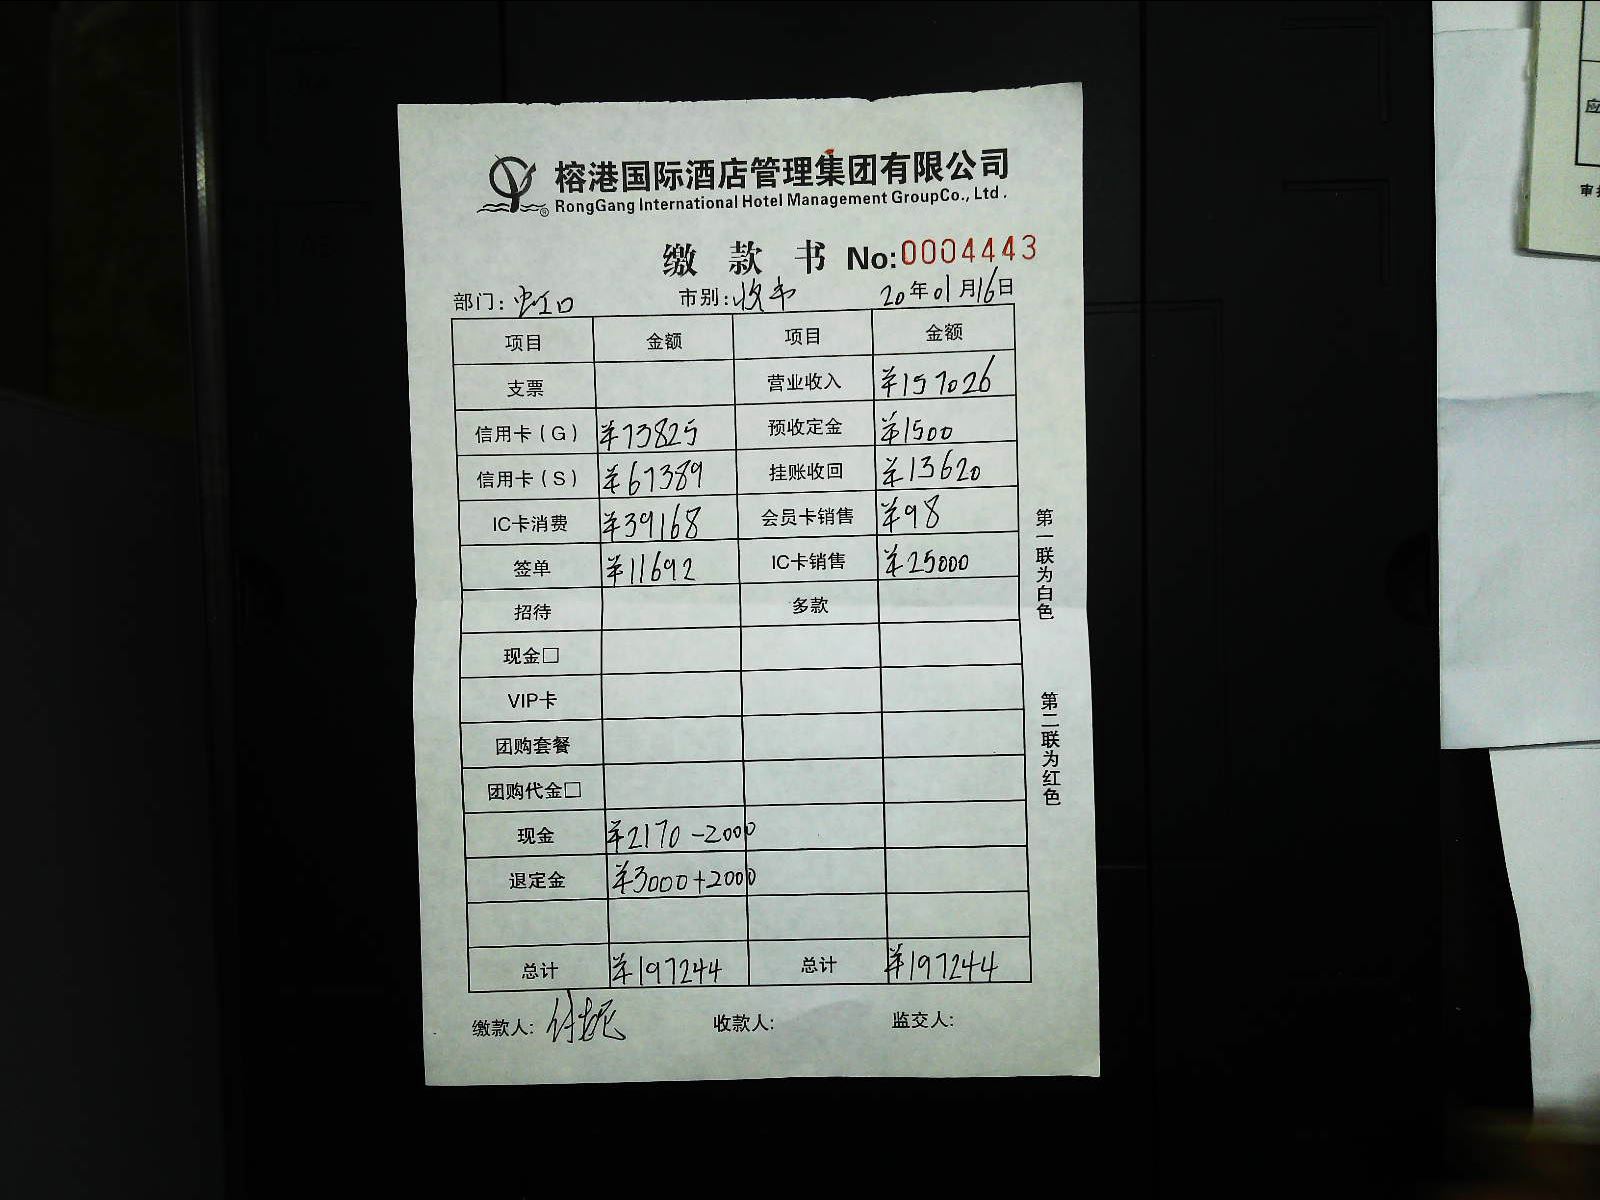 榕港国际酒店管理集团有限公司
RongGang International Hotel Management GroupCo., Ltd.
缴 款 书 No:0004443
部门: 虹口 市别: 收市 20年01月16日
项目 金额 项目 金额
支票 营业收入 ¥157026
信用卡(G) ¥73825 预收定金 ¥1500
信用卡(S) ¥67389 挂账收回 ¥13620
IC卡消费 ¥39168 会员卡销售 ¥98
签单 ¥11692 IC卡销售 ¥25000
招待 多款
现金□
VIP卡
团购套餐
团购代金□
现金 ¥2170-2000
退定金 ¥3000+2000
总计 ¥197244 总计 ¥197244
缴款人: 收款人: 监交人:
第一联为白色
第二联为红色
应
审